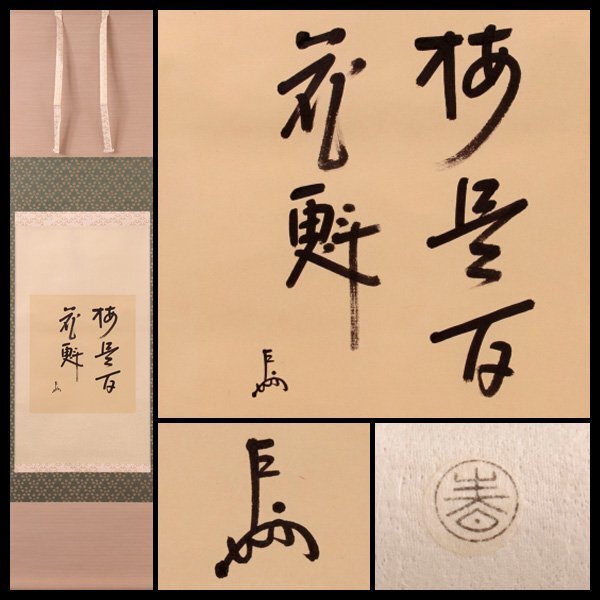 梅是百
花魁
春